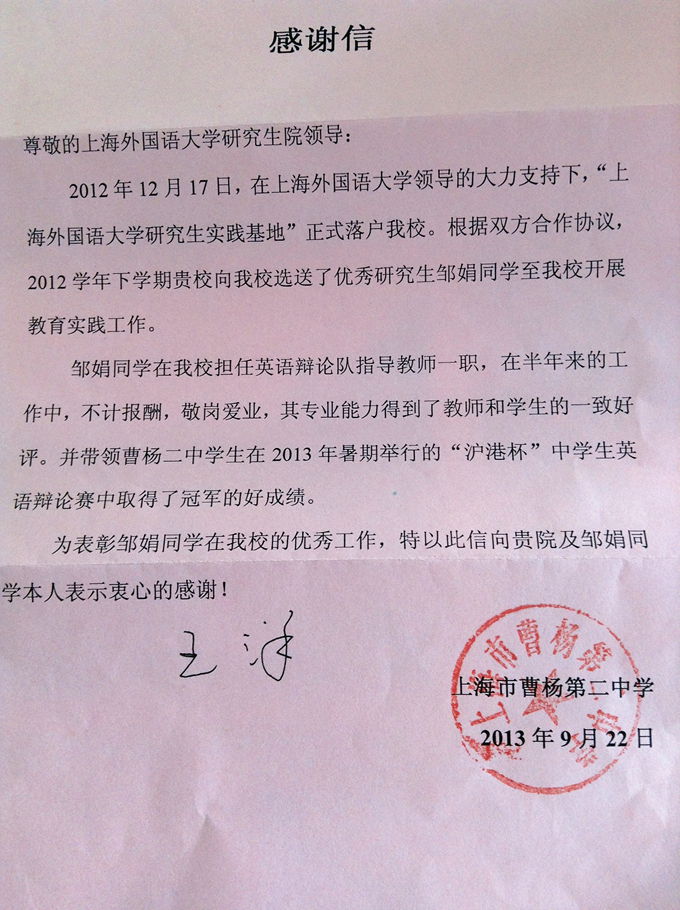 感谢信
尊敬的上海外国语大学研究生院领导：
2012 年 12 月 17 日，在上海外国语大学领导的大力支持下，“上
海外国语大学研究生实践基地”正式落户我校。根据双方合作协议，
2012 学年下学期贵校向我校选送了优秀研究生邹娟同学至我校开展
教育实践工作。
邹娟同学在我校担任英语辩论队指导教师一职，在半年来的工
作中，不计报酬，敬岗爱业，其专业能力得到了教师和学生的一致好
评。并带领曹杨二中学生在 2013 年暑期举行的“沪港杯”中学生英
语辩论赛中取得了冠军的好成绩。
为表彰邹娟同学在我校的优秀工作，特以此信向贵院及邹娟同
学本人表示衷心的感谢！
王洋
上海市曹杨第二中学
上海市曹杨第二中学
2013 年 9 月 22 日